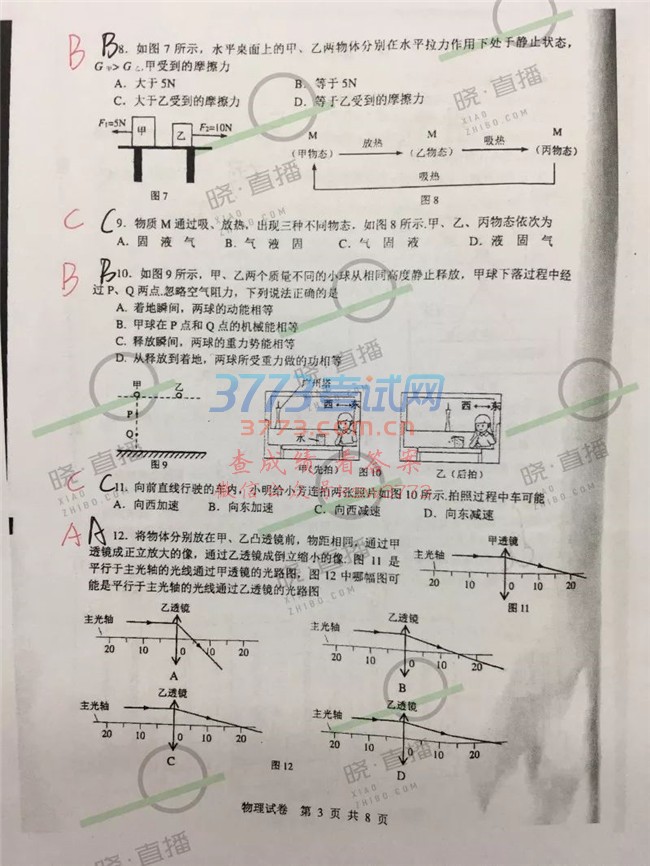 B B 8．如图 7 所示，水平桌面上的甲、乙两物体分别在水平拉力作用下处于静止状态，
G甲> G乙.甲受到的摩擦力
A．大于 5N B．等于 5N
C．大于乙受到的摩擦力 D．等于乙受到的摩擦力
F₁=5N 甲 乙 F₂=10N
图 7
M 放热 M 吸热 M
(甲物态) (乙物态) (丙物态)
吸热
图 8
C C 9．物质 M 通过吸、放热，出现三种不同物态．如图 8 所示.甲、乙、丙物态依次为
A. 固 液 气 B. 气 液 固 C. 气 固 液 D. 液 固 气
B B 10．如图 9 所示，甲、乙两个质量不同的小球从相同高度静止释放，甲球下落过程中经
过 P、Q 两点.忽略空气阻力，下列说法正确的是
A. 着地瞬间，两球的动能相等
B. 甲球在 P 点和 Q 点的机械能相等
C. 释放瞬间，两球的重力势能相等
D. 从释放到着地，两球所受重力做的功相等
甲 乙
P
Q
图 9
广州塔
西 东
水
甲(先拍) 图 10
西 东
乙（后拍）
3773考试网
www.3773.com.cn
查成绩 看答案
C C 11. 向前直线行驶的车内，小明给小芳连拍两张照片如图 10 所示.拍照过程中车可能
A. 向西加速 B. 向东加速 C. 向西减速 D. 向东减速
A A 12. 将物体分别放在甲、乙凸透镜前，物距相同，通过甲
透镜成正立放大的像，通过乙透镜成倒立缩小的像.图 11 是
平行于主光轴的光线通过甲透镜的光路图，图 12 中哪幅图可
能是平行于主光轴的光线通过乙透镜的光路图
甲透镜
主光轴
20 10 0 10 20
图 11
乙透镜
主光轴
20 10 0 10 20
A
乙透镜
主光轴
20 10 0 10 20
B
乙透镜
主光轴
20 10 0 10 20
C
乙透镜
主光轴
20 10 0 10 20
D
图 12
物理试卷 第 3 页 共 8 页
晓·直播
XIAO
ZHIBO.COM